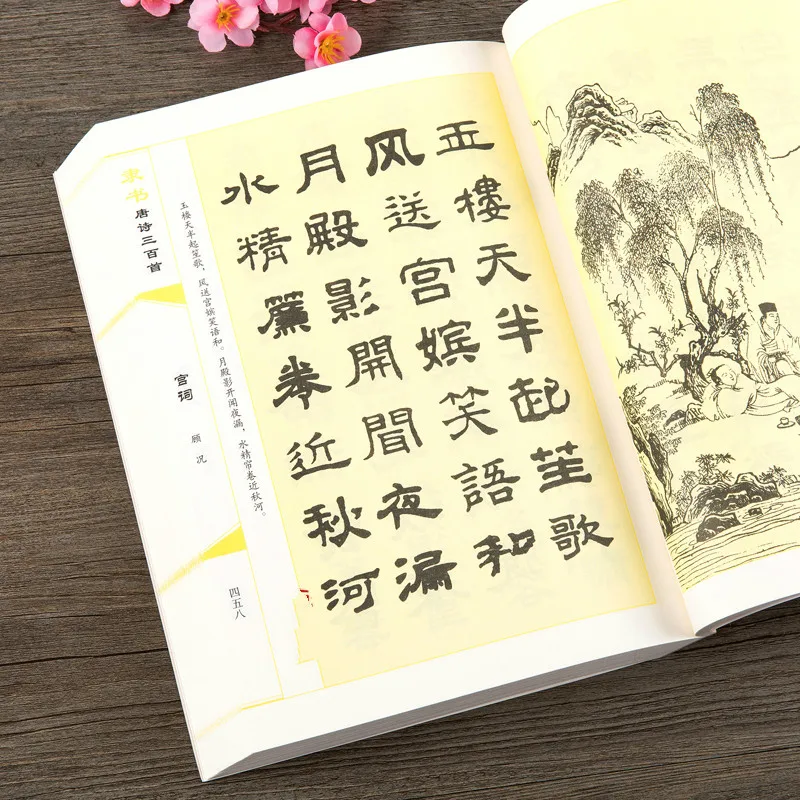 玉樓天半起笙歌
风送宫嬪笑語和
月殿影開聞夜漏
水精簾卷近秋河
玉楼天半起笙歌，风送宫嫔笑语和。月殿影开闻夜漏，水精帘卷近秋河。
隶书
唐诗三百首
宫词
顾况
四五八